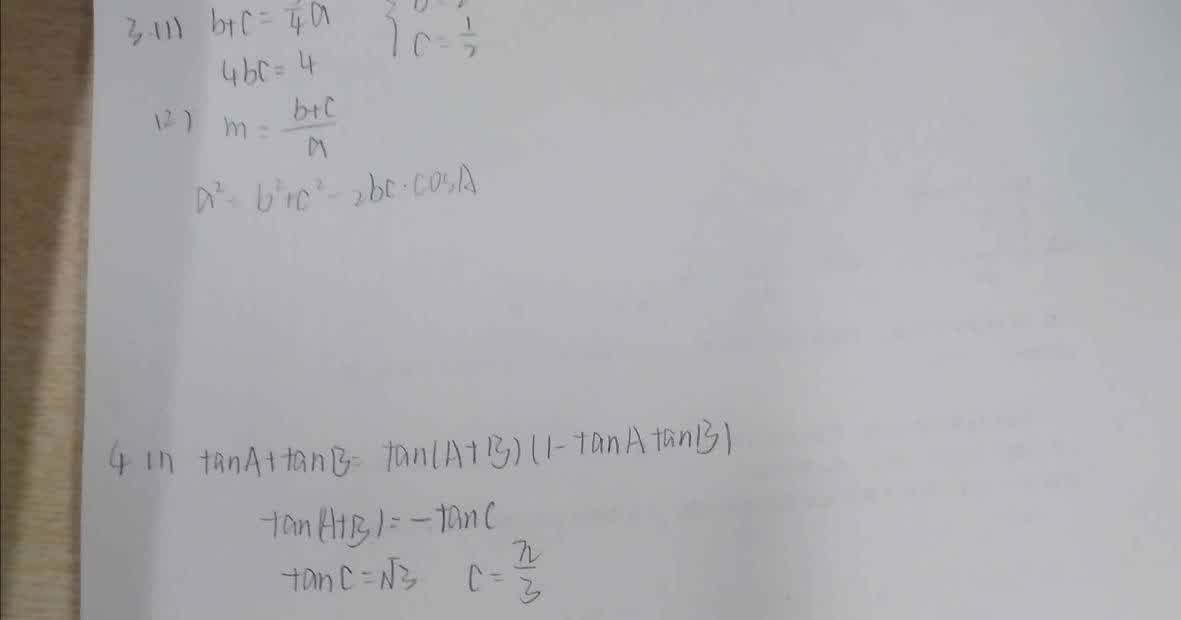 3.(1) b+c=5/4a { c=1/2
4bc=4
(2) m=(b+c)/a
a²=b²+c²-2bc·cosA
4 (1) tanA+tanB=tan(A+B)(1-tanAtanB)
tan(A+B)=-tanC
tanC=√3 C=π/3